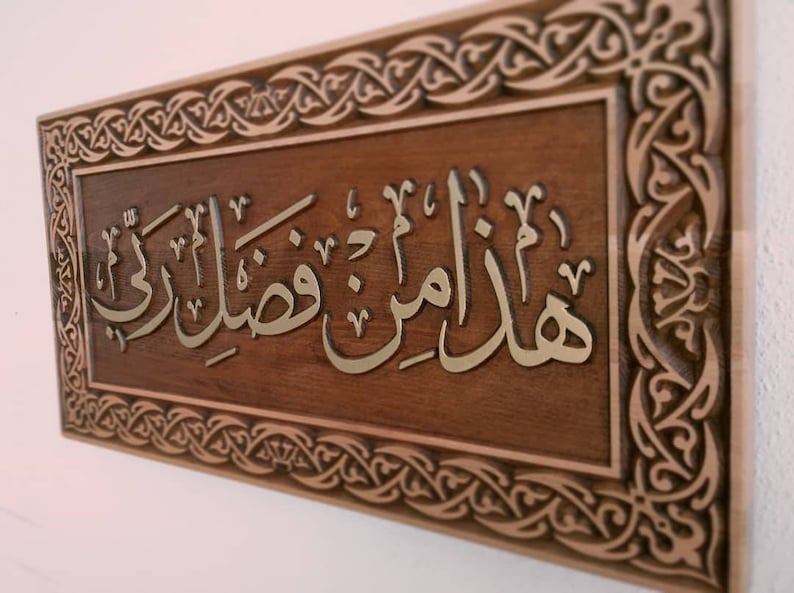 هذا مِن فَضَلِ رَبّي